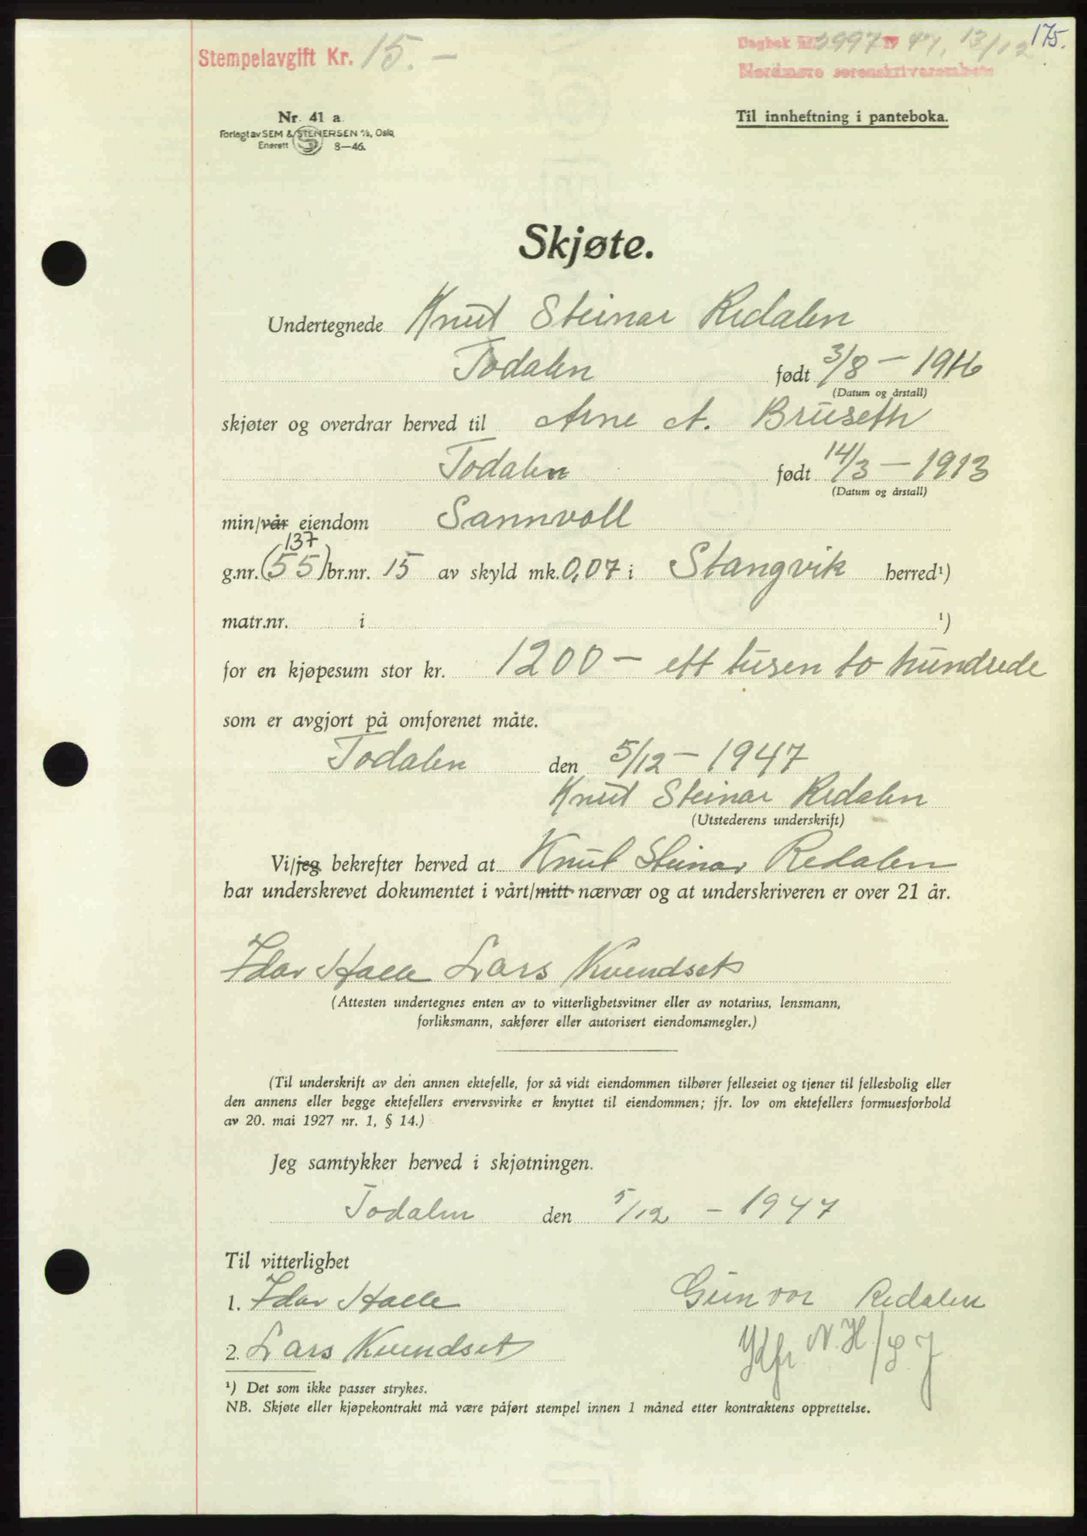 175.
Stempelavgift Kr. 15.—
Dagbok nr. 3997 19 47, 13/12
Nordmøre sorenskriverembete
Nr. 41 a
Forlagt av SEM & STENERSEN A/S, Oslo
Enerett 8—46.
Til innheftning i panteboka.
Skjøte.
Undertegnede Knut Steinar Redalen
Todalen født 3/8 — 1916
(Datum og årstall)
skjøter og overdrar herved til Arne A. Bruseth
Todalen født 14/3 — 1913
(Datum og årstall)
min/vår eiendom Sannvoll
137
g.nr. (55) br.nr. 15 av skyld mk. 0,07 i Stangvik herred¹)
matr.nr. i ¹)
for en kjøpesum stor kr. 1200 — ett tusen to hundrede
som er avgjort på omforenet måte.
Todalen den 5/12 — 1947
Knut Steinar Redalen
(Utstederens underskrift)
Vi/jeg bekrefter herved at Knut Steinar Redalen
har underskrevet dokumentet i vårt/mitt nærvær og at underskriveren er over 21 år.
Idar Halle Lars Kvendset
(Attesten undertegnes enten av to vitterlighetsvitner eller av notarius, lensmann,
forliksmann, sakfører eller autorisert eiendomsmegler.)
(Til underskrift av den annen ektefelle, for så vidt eiendommen tilhører felleseiet og tjener til fellesbolig eller
den annens eller begge ektefellers ervervsvirke er knyttet til eiendommen; jfr. lov om ektefellers formuesforhold
av 20. mai 1927 nr. 1, § 14.)
Jeg samtykker herved i skjøtningen.
Todalen den 5/12 — 1947
Til vitterlighet
1. Idar Halle Gunvor Redalen
2. Lars Kvendset
¹) Det som ikke passer strykes.
NB. Skjøte eller kjøpekontrakt må være påført stempel innen 1 måned etter kontraktens opprettelse.